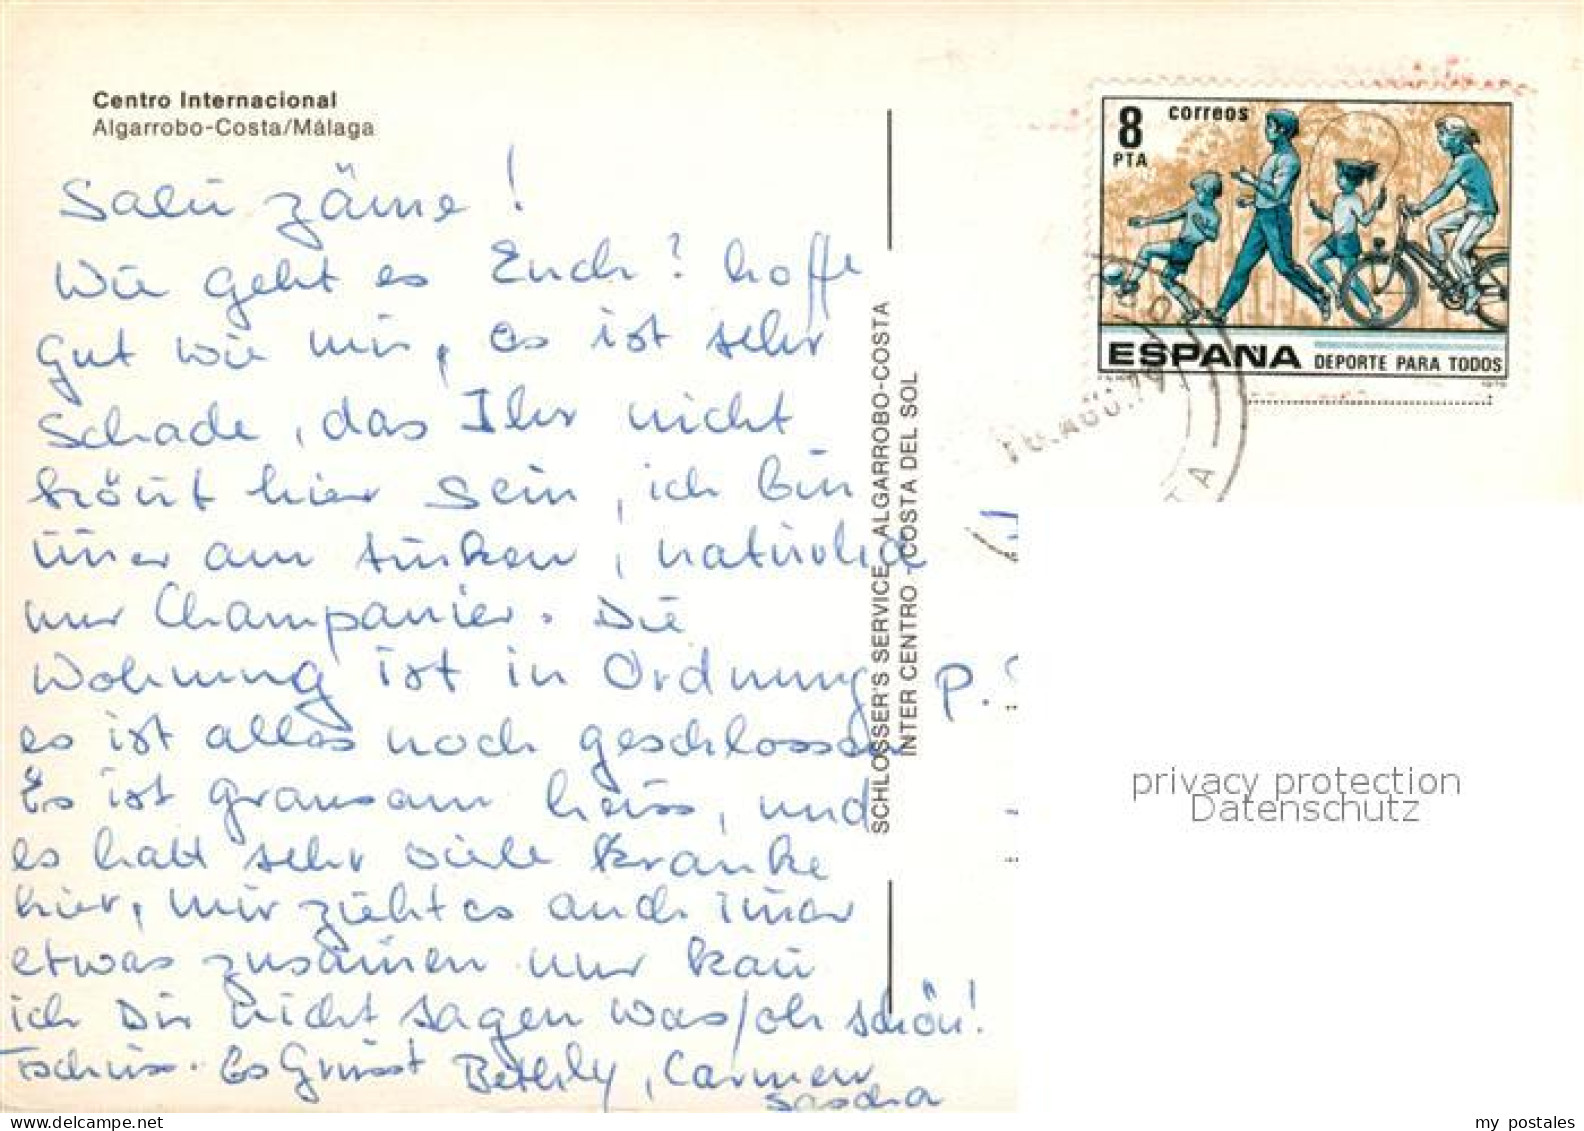 Centro Internacional
Algarrobo-Costa/Málaga
Salü zäme!
Wie geht es Euch? hoffe
gut wie mir, es ist sehr
Schade, das Ihr nicht
könnt hier sein, ich bin
imer am trinken, natürlich
nur Champanier. Die
Wohnung ist in Ordnung
es ist alles noch geschlossen
Es ist grausam heiss, und
es hatt sehr viele Kranke
hier, mir zieht es auch imer
etwas zusamen nur kan
ich Dir nicht sagen was/oh schön!
Tschüss. Es Grüsst Bethly, Carmen
Sascha
SCHLOSSER'S SERVICE ALGARROBO-COSTA
INTER CENTRO - COSTA DEL SOL
8 correos
PTA
ESPAÑA DEPORTE PARA TODOS
1979
P.
privacy protection
Datenschutz
my postales